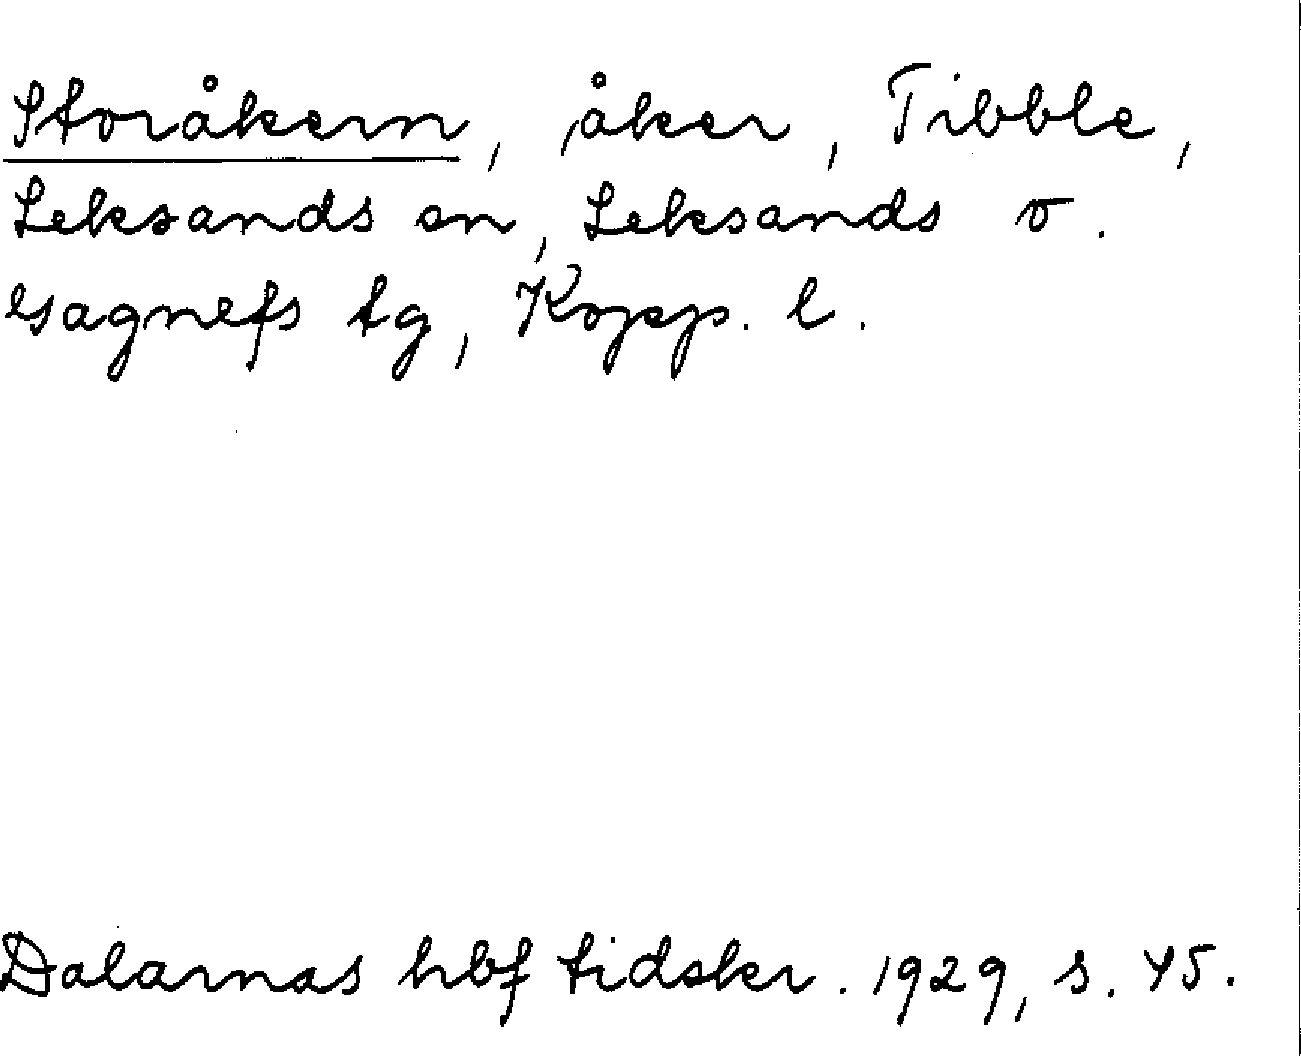 Storåkern, åker, Tibble,
Leksands sn, Leksands o.
Gagnefs tg, Kopp. l.
Dalarnas hbf tidskr. 1929, s. 45.